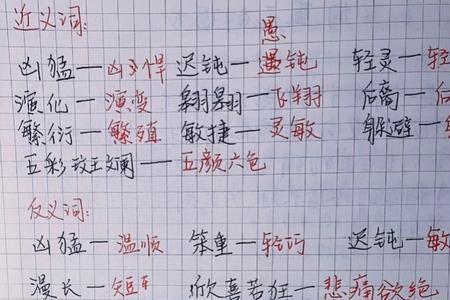 近义词:
愚
凶猛—凶悍 迟钝—愚钝 轻灵—轻
演化—演变 翱翔—飞翔 后裔—后
繁衍—繁殖 敏捷—灵敏 躲避—
五彩斑斓—五颜六色
反义词:
凶猛—温顺 笨重—轻巧 迟钝—敏
漫长—短 欣喜若狂—悲痛欲绝